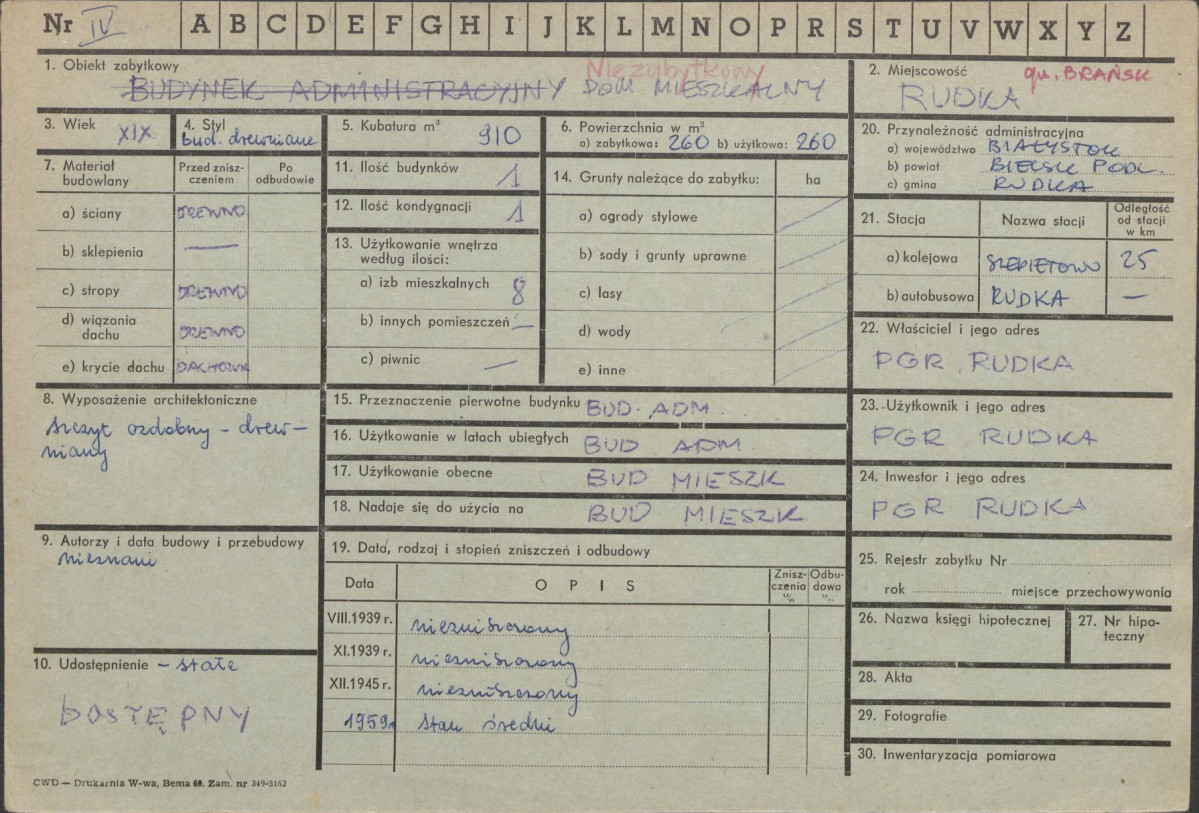 Nr IV A B C D E F G H I J K L M N O P R S T U V W X Y Z
1. Obiekt zabytkowy
Niezabytkowy
BUDYNEK ADMINISTRACYJNY DOM MIESZKALNY
2. Miejscowość gm. BRAŃSK
RUDKA
3. Wiek XIX
4. Styl
bud. drewniane
5. Kubatura m³ 910
6. Powierzchnia w m²
a) zabytkowa: 260 b) użytkowa: 260
7. Materiał budowlany
Przed zniszczeniem
Po odbudowie
a) ściany DREWNO
b) sklepienia —
c) stropy DREWNO
d) wiązania dachu DREWNO
e) krycie dachu DACHÓWK
8. Wyposażenie architektoniczne
szczyt ozdobny – drew–
niany
9. Autorzy i data budowy i przebudowy
nieznani
10. Udostępnienie – stałe
DOSTĘPNY
11. Ilość budynków 1
12. Ilość kondygnacji 1
13. Użytkowanie wnętrza
według ilości:
a) izb mieszkalnych 8
b) innych pomieszczeń —
c) piwnic —
14. Grunty należące do zabytku: ha
a) ogrody stylowe
b) sady i grunty uprawne
c) lasy
d) wody
e) inne
15. Przeznaczenie pierwotne budynku BUD. ADM.
16. Użytkowanie w latach ubiegłych BUD ADM.
17. Użytkowanie obecne BUD MIESZK
18. Nadaje się do użycia na BUD MIESZK
19. Data, rodzaj i stopień zniszczeń i odbudowy
Data OPIS Zniszczenia % Odbudowa %
VIII.1939 r. niezniszczony
XI.1939 r. niezniszczony
XII.1945 r. niezniszczony
1959r stan średni
20. Przynależność administracyjna
a) województwo BIAŁYSTOK
b) powiat BIELSK PODL.
c) gmina RUDKA
21. Stacja Nazwa stacji Odległość od stacji w km
a) kolejowa SZEPIETOWO 25
b) autobusowa RUDKA —
22. Właściciel i jego adres
PGR RUDKA
23. Użytkownik i jego adres
PGR RUDKA
24. Inwestor i jego adres
PGR RUDKA
25. Rejestr zabytku Nr
rok miejsce przechowywania
26. Nazwa księgi hipotecznej
27. Nr hipo-
teczny
28. Akta
29. Fotografie
30. Inwentaryzacja pomiarowa
CWD — Drukarnia W-wa, Bema 60. Zam. nr 349-5162